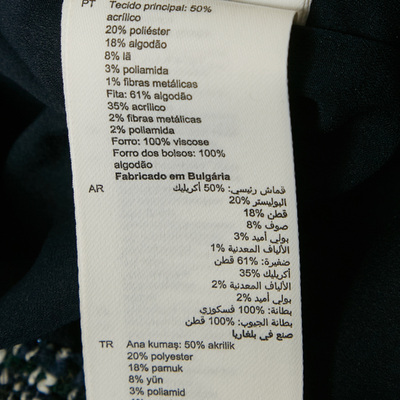 PT Tecido principal: 50%
acrílico
20% poliéster
18% algodão
8% lã
3% poliamida
1% fibras metálicas
Fita: 61% algodão
35% acrílico
2% fibras metálicas
2% poliamida
Forro: 100% viscose
Forro dos bolsos: 100%
algodão
Fabricado em Bulgária
AR قماش رئيسي: 50% أكريليك
البوليستر 20%
قطن 18%
صوف 8%
بولي أميد 3%
الألياف المعدنية 1%
ضفيرة: 61% قطن
أكريليك 35%
الألياف المعدنية 2%
بولي أميد 2%
بطانة: 100% فسكوزي
بطانة الجيوب: 100% قطن
صنع في بلغاريا
TR Ana kumaş: 50% akrilik
20% polyester
18% pamuk
8% yün
3% poliamid